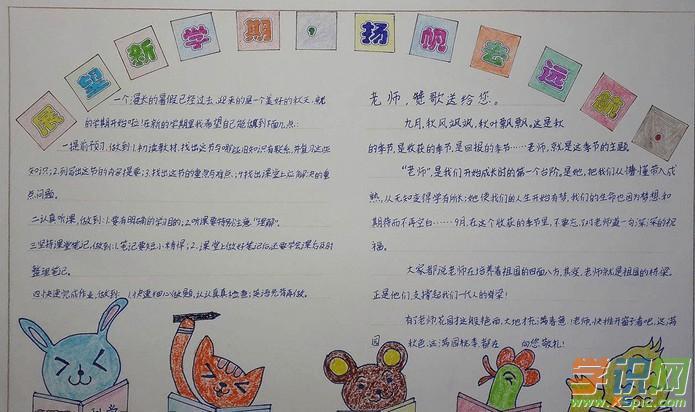 展望新学期，扬帆去远航。
一个漫长的暑假已经过去，迎来的是一个美好的秋天，新
的学期开始啦！在新的学期里我希望自己能做到下面几点：
一提前预习，做到：1.初读教材，找出这节与哪些旧知识有联系，并复习这些
知识；2.列写出这节的内容提要；3.找出这节的重点与难点；4.找出课堂上应解决的重
点问题。
二认真听课，做到：1.要有明确的学习目的；2.听课要特别注意“理解”。
三坚持课堂笔记，做到：1.笔记要短小精悍；2.课堂上做好笔记后还要学会课后及时
整理笔记。
四快速完成作业，做到：1.快速细心做题，认认真真检查；英语先背再做。
老师，赞歌送给您。
九月，秋风飒飒，秋叶飘飘。这是秋
的季节，是收获的季节，是回报的季节……老师，就是这季节的主题
“老师”，是我们开始成长时的第一个台阶。是她，把我们从懵懂带入成
熟，从无知变得学有所长；她使我们的人生开始有梦，我们的生命也因为梦想和
期待而不再空白……9月，在这个收获的季节里，不要忘了对老师道一句深深的祝
福。
大家都说老师在培养着祖国的四面八方，其实，老师就是祖国的桥梁。
正是他们支撑起我们一代人的脊梁！
有了老师花园才这般艳丽，大地才充满春意！老师，快推开窗子看吧，这满
园秋色，这满园桃李都在向您敬礼！
学识网
www.xspic.com